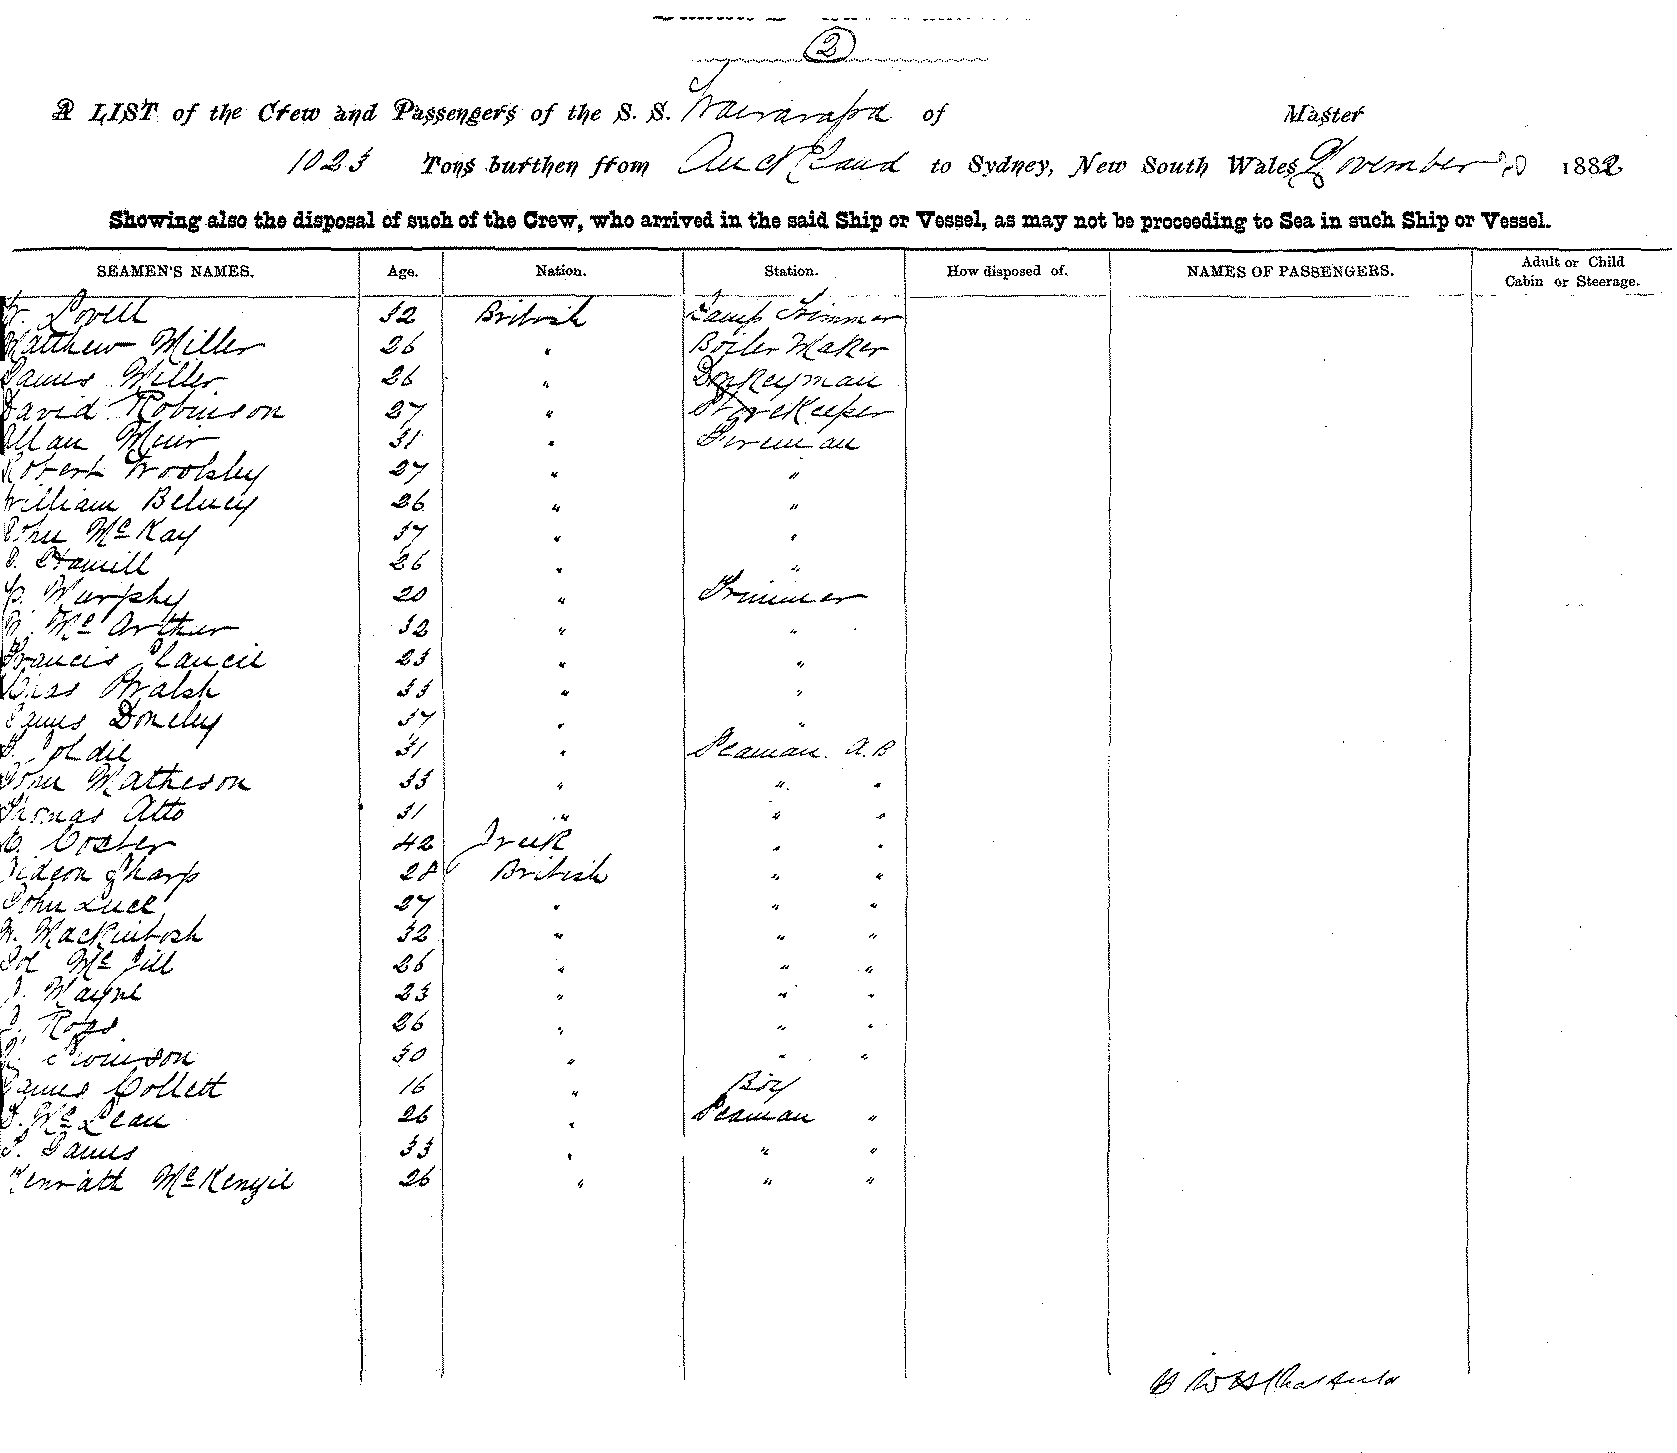 2
A LIST of the Crew and Passengers of the S. S. Wairarapa of Master
1023 Tons burthen from Auckland to Sydney, New South Wales November 1882
Showing also the disposal of such of the Crew, who arrived in the said Ship or Vessel, as may not be proceeding to Sea in such Ship or Vessel.
SEAMEN'S NAMES. Age. Nation. Station. How disposed of. NAMES OF PASSENGERS. Adult or Child Cabin or Steerage.
W. Lovell 32 British Lamp Trimmer
Matthew Miller 26 " Boiler Maker
James Miller 26 " Donkeyman
David Robinson 27 " Storekeeper
Allan Muir 31 " Fireman
Robert Woolsley 27 " "
William 26 " "
John McKay 37 " "
Hamill 26 " "
P. Murphy 20 " Trimmer
McArthur 32 " "
Francis Clancie 23 " "
Chas Walsh 33 " "
James Doneley 37 " "
Goldie 31 " Seaman. A.B
John Matheson 33 " " "
Thomas Atto 31 " " "
Coster 42 Greek " "
Gideon Sharp 28 British " "
John Luce 27 " " "
Mackintosh 32 " " "
McGill 26 " " "
Wayne 23 " " "
Ross 26 " " "
Swinson 30 " " "
James Collett 16 " Boy
D. McLean 26 " Seaman "
James 33 " " "
McKenzie 26 " " "